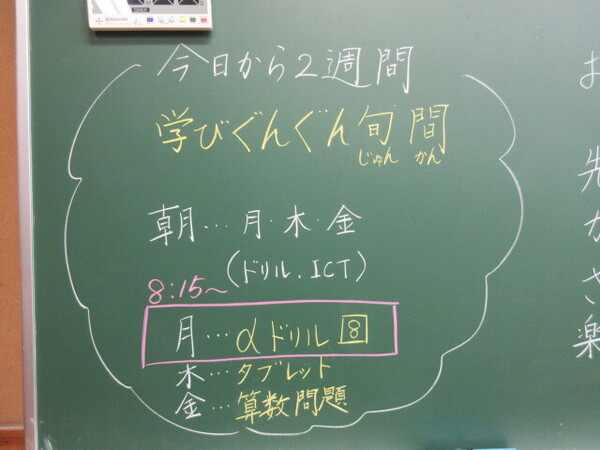 今日から2週間
学びぐんぐん旬間
じゅんかん
朝…月・木・金
(ドリル.ICT)
8:15～
月…αドリル8
木…タブレット
金…算数問題
お
先
か
さ
楽